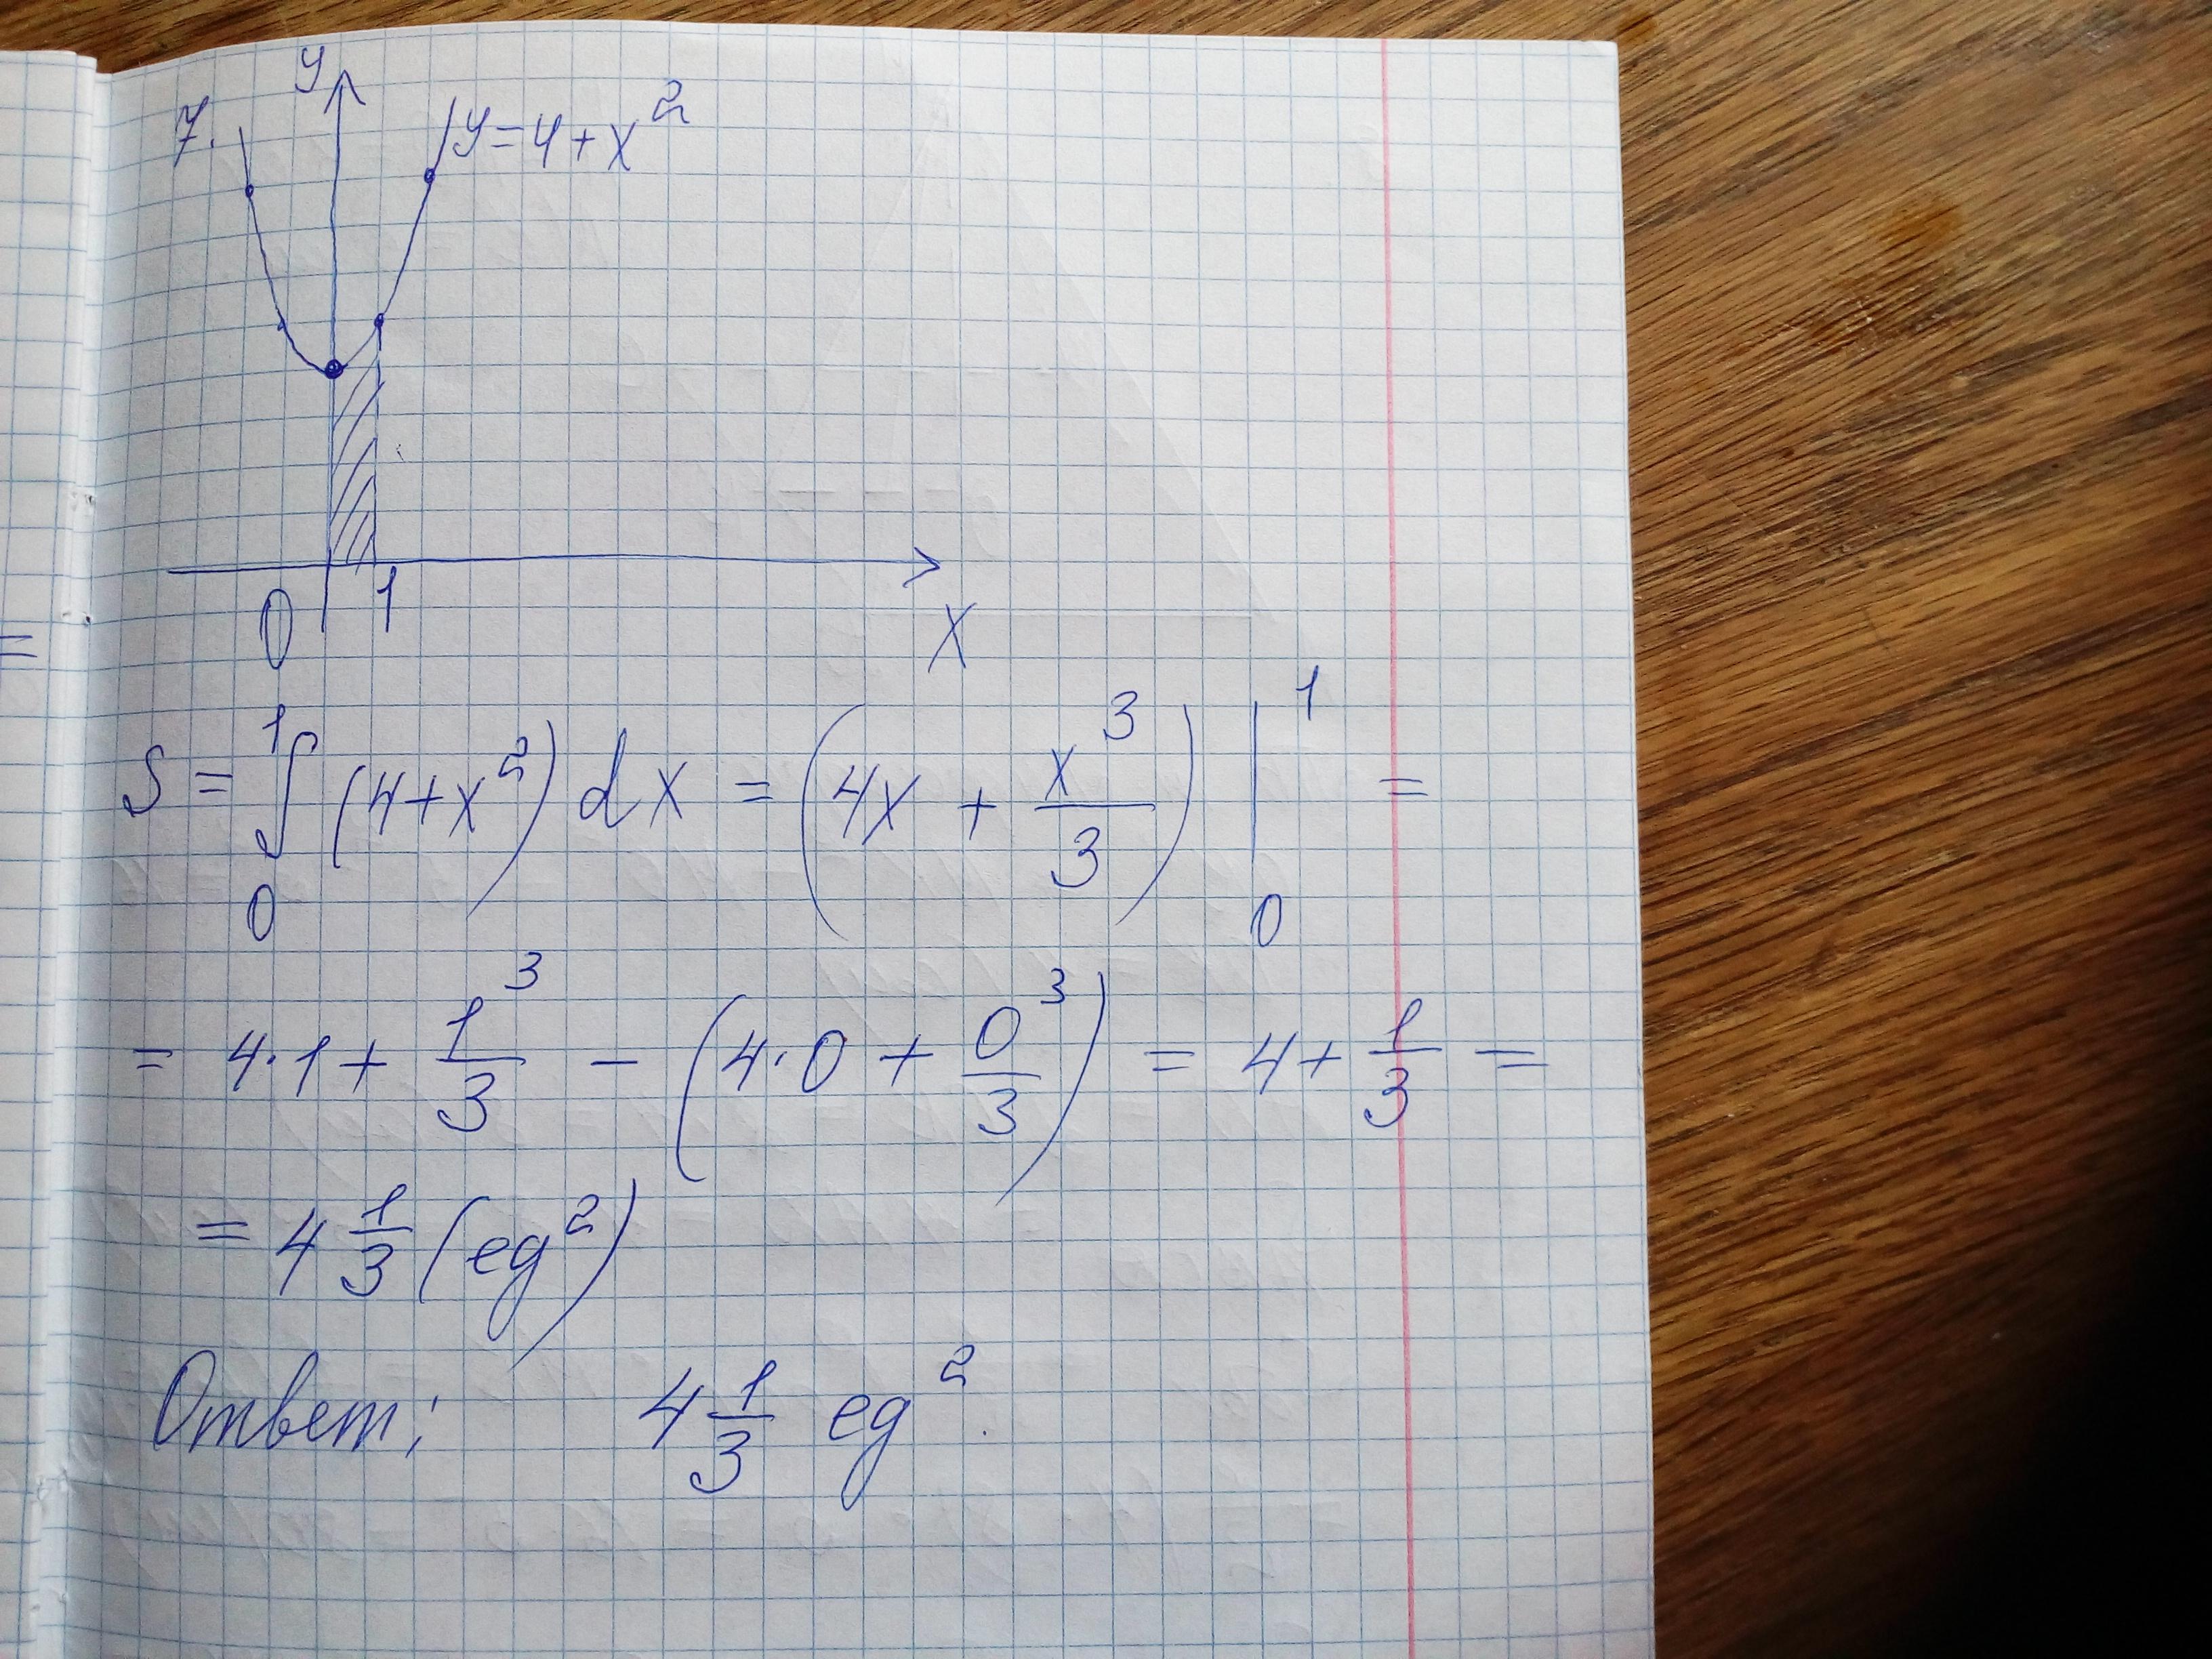 y
7. y=4+x²
0 1
x
=
S = ∫₀¹ (4+x²) dx = (4x + x³/3) |₀¹ =
= 4·1 + 1³/3 − (4·0 + 0³/3) = 4 + 1/3 =
= 4 1/3 (ед²)
Ответ: 4 1/3 ед².